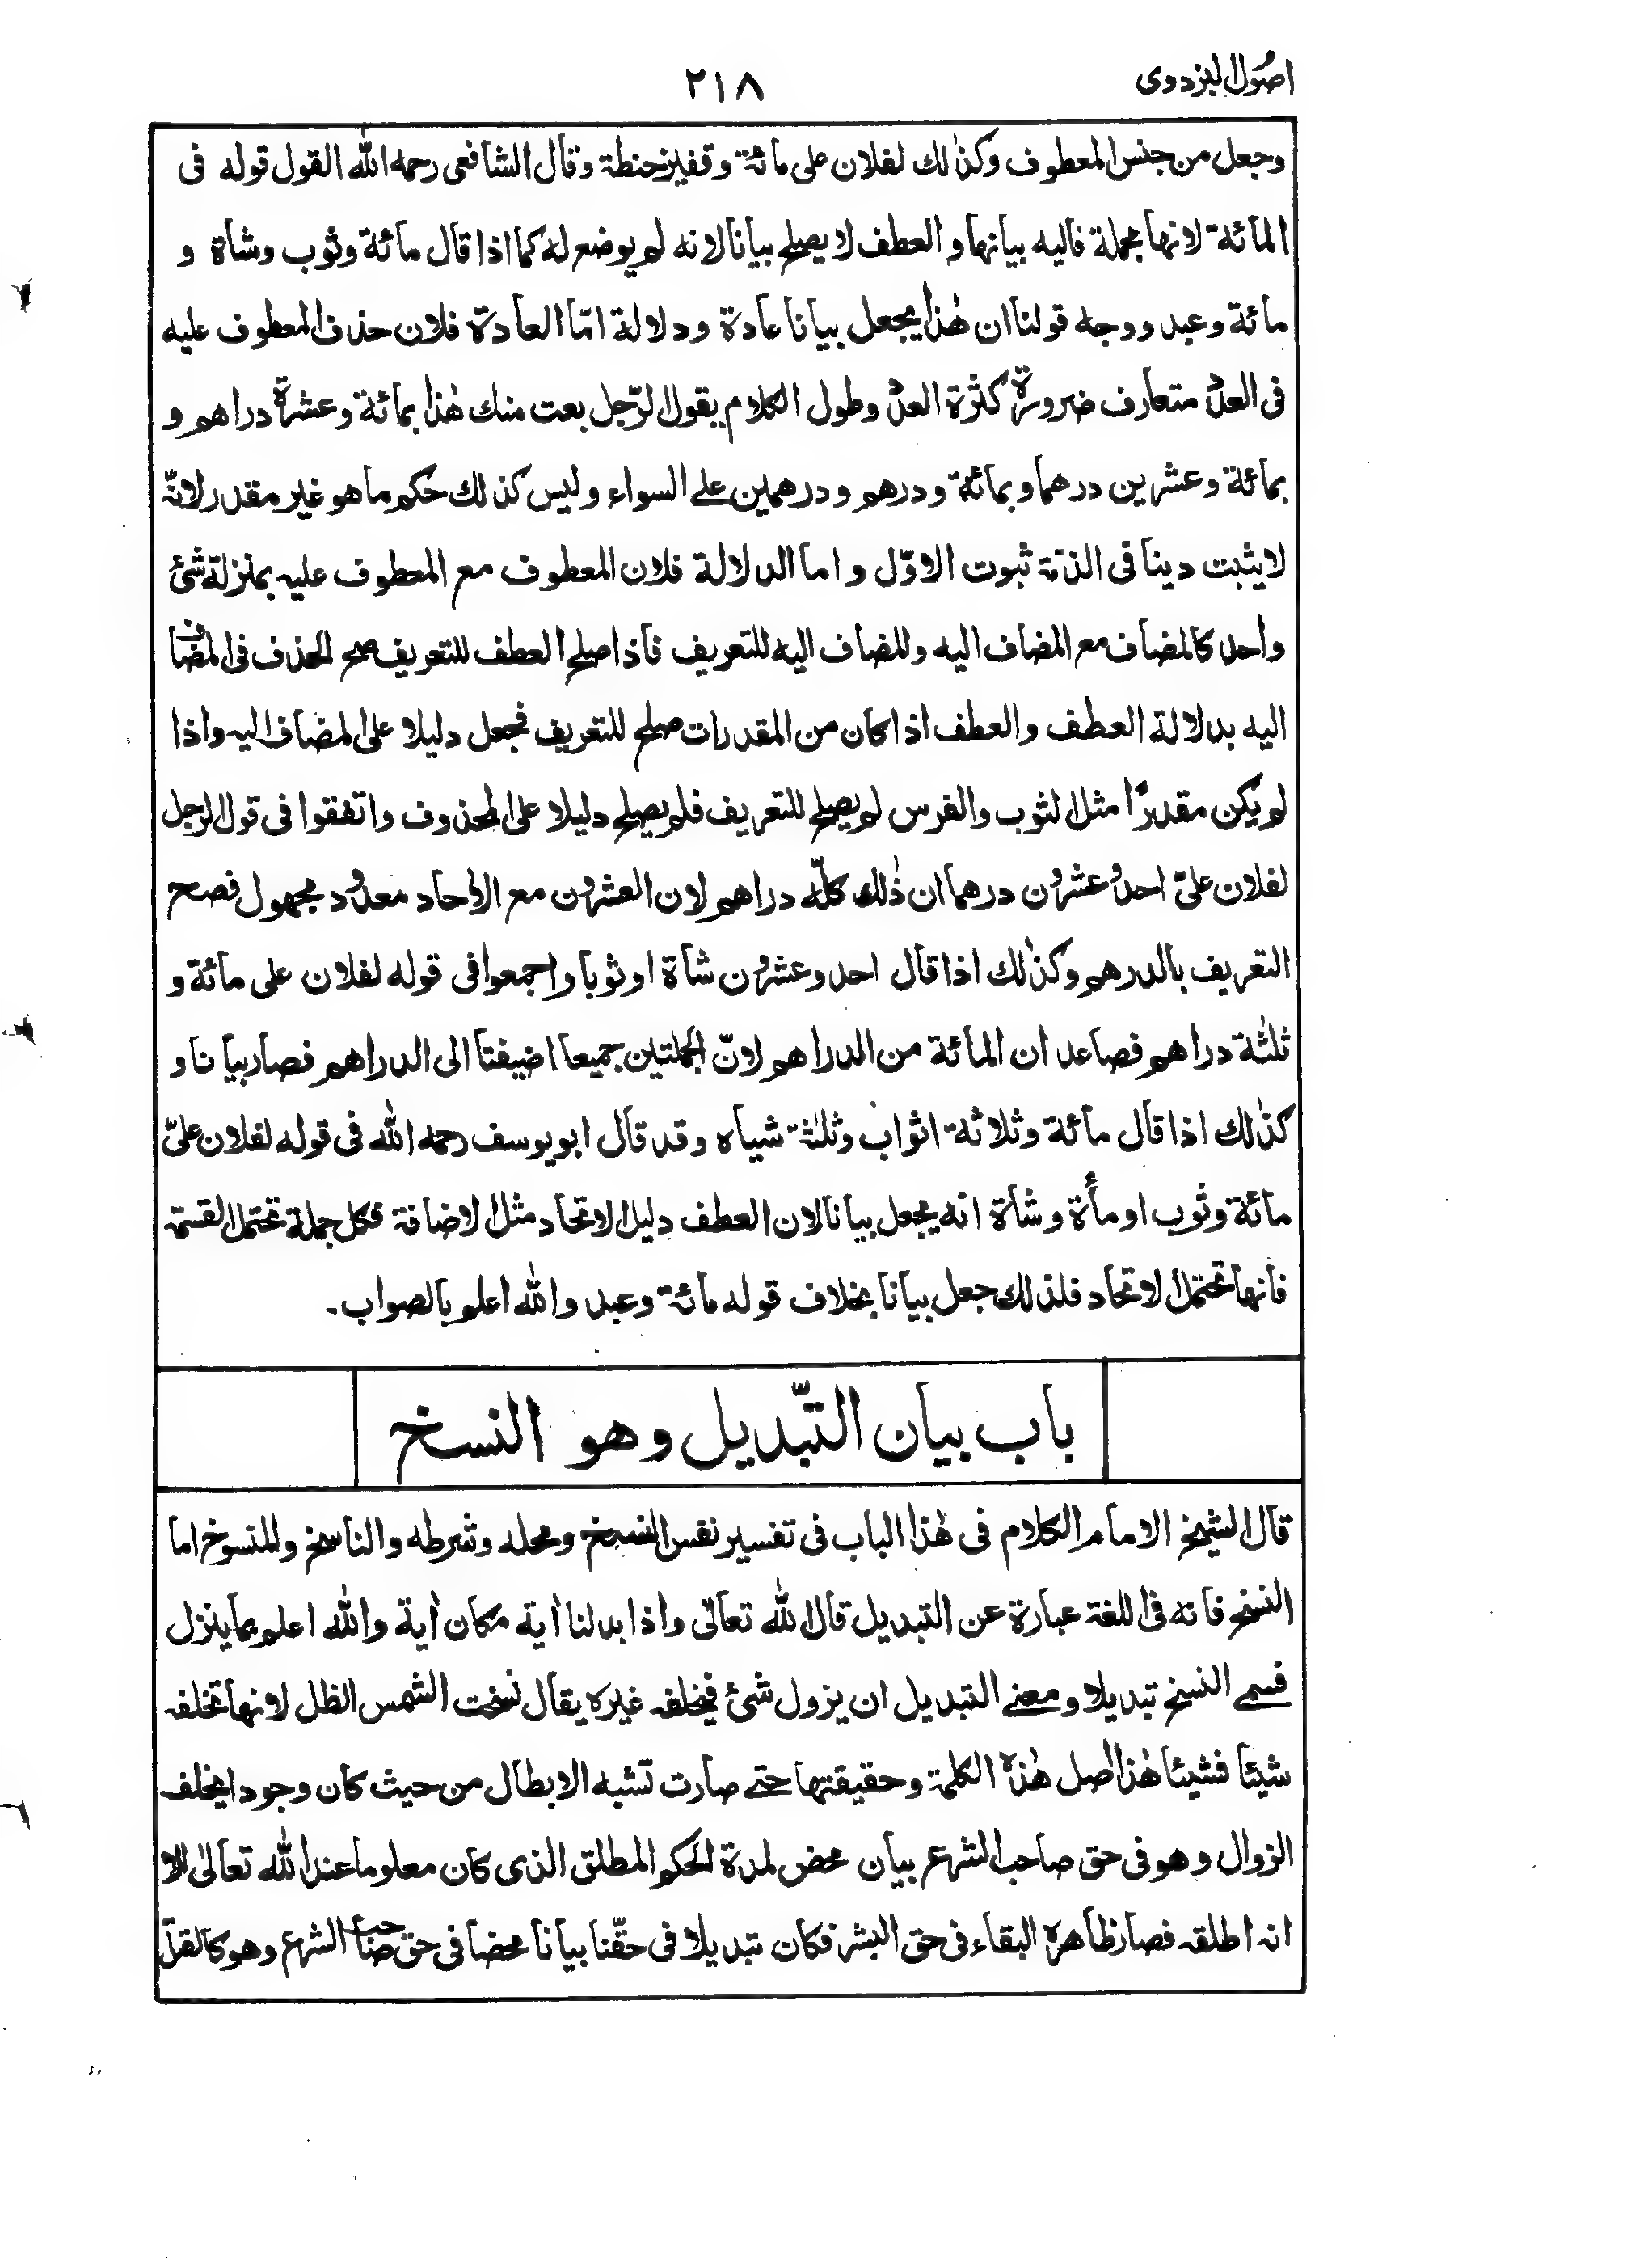 اصول البزدوى
٢١٨
وجعل من جنس المعطوف وكذلك لفلان على مائة وقفيز حنطة وقال الشافعى رحمه الله القول قوله فى
المائة لانها مجملة فاليه بيانها والعطف لا يصلح بيانا لانه لم يوضع له كما اذا قال مائة وثوب وشاة و
مائة وعبد ووجه قولنا ان هٰذا يجعل بيانا عادة ودلالة امّا العادة فلان حذف المعطوف عليه
فى العدد متعارف ضرورة كثرة العدد وطول الكلام يقول الرّجل بعت منك هٰذا بمائة وعشرة دراهم و
بمائة وعشرين درهما وبمائة ودرهم ودرهمين على السواء وليس كذلك حكم ما هو غير مقدر لانّه
لا يثبت دينا فى الذمة ثبوت الاوّل واما الدلالة فلان المعطوف مع المعطوف عليه بمنزلة شئ
واحد كالمضاف مع المضاف اليه وللمضاف اليه للتعريف فاذا صلح العطف للتعريف صح الحذف فى المضاف
اليه بدلالة العطف والعطف اذا كان من المقدرات صلح للتعريف فجعل دليلا على المضاف اليه واذا
لم يكن مقدرًا مثل الثوب والفرس لم يصلح للتعريف فلم يصلح دليلا على المحذوف واتفقوا فى قول الرجل
لفلان علىّ احد وعشرون درهما ان ذٰلك كلّه دراهم لان العشرون مع الاٰحاد معدود مجهول فصح
التعريف بالدرهم وكذٰلك اذا قال احد وعشرون شاة او ثوبا واجمعوا فى قوله لفلان على مائة و
ثلٰثة دراهم فصاعدا ان المائة من الدراهم لانّ الجملتين جميعا اضيفتا الى الدراهم فصار بيانا و
كذٰلك اذا قال مائة وثلاثة اثواب وثلٰثة شياه وقد قال ابو يوسف رحمه الله فى قوله لفلان علىّ
مائة وثوب او مأة وشاة انه يجعل بيانا لان العطف دليل الاتحاد مثل الاضافة فكل جملة تحتمل القسمة
فانها تحتمل الاتحاد فلذلك جعل بيانا بخلاف قوله مائة وعبد والله اعلم بالصواب۔
باب بيان التّبديل وهو النسخ
قال الشيخ الامام الكلام فى هٰذا الباب فى تفسير نفس النسخ ومحله وشرطه والناسخ والمنسوخ اما
النسخ فانه فى اللغة عبارة عن التبديل قال الله تعالٰى واذا بدلنا اٰية مكان اٰية والله اعلم بما ينزل
فسمى النسخ تبديلا ومعنى التبديل ان يزول شئ فيخلفه غيره يقال نسخت الشمس الظل لانها تخلفه
شيئا فشيئا هٰذا اصل هٰذه الكلمة وحقيقتها حتى صارت تشبه الابطال من حيث كان وجودا يخلف
الزوال وهو فى حق صاحب الشرع بيان محض لمدة الحكم المطلق الذى كان معلوما عند الله تعالٰى الا
انه اطلقه فصار ظاهره البقاء فى حق البشر فكان تبديلا فى حقّنا بيانا محضا فى حق صاحب الشرع وهو كالقتل